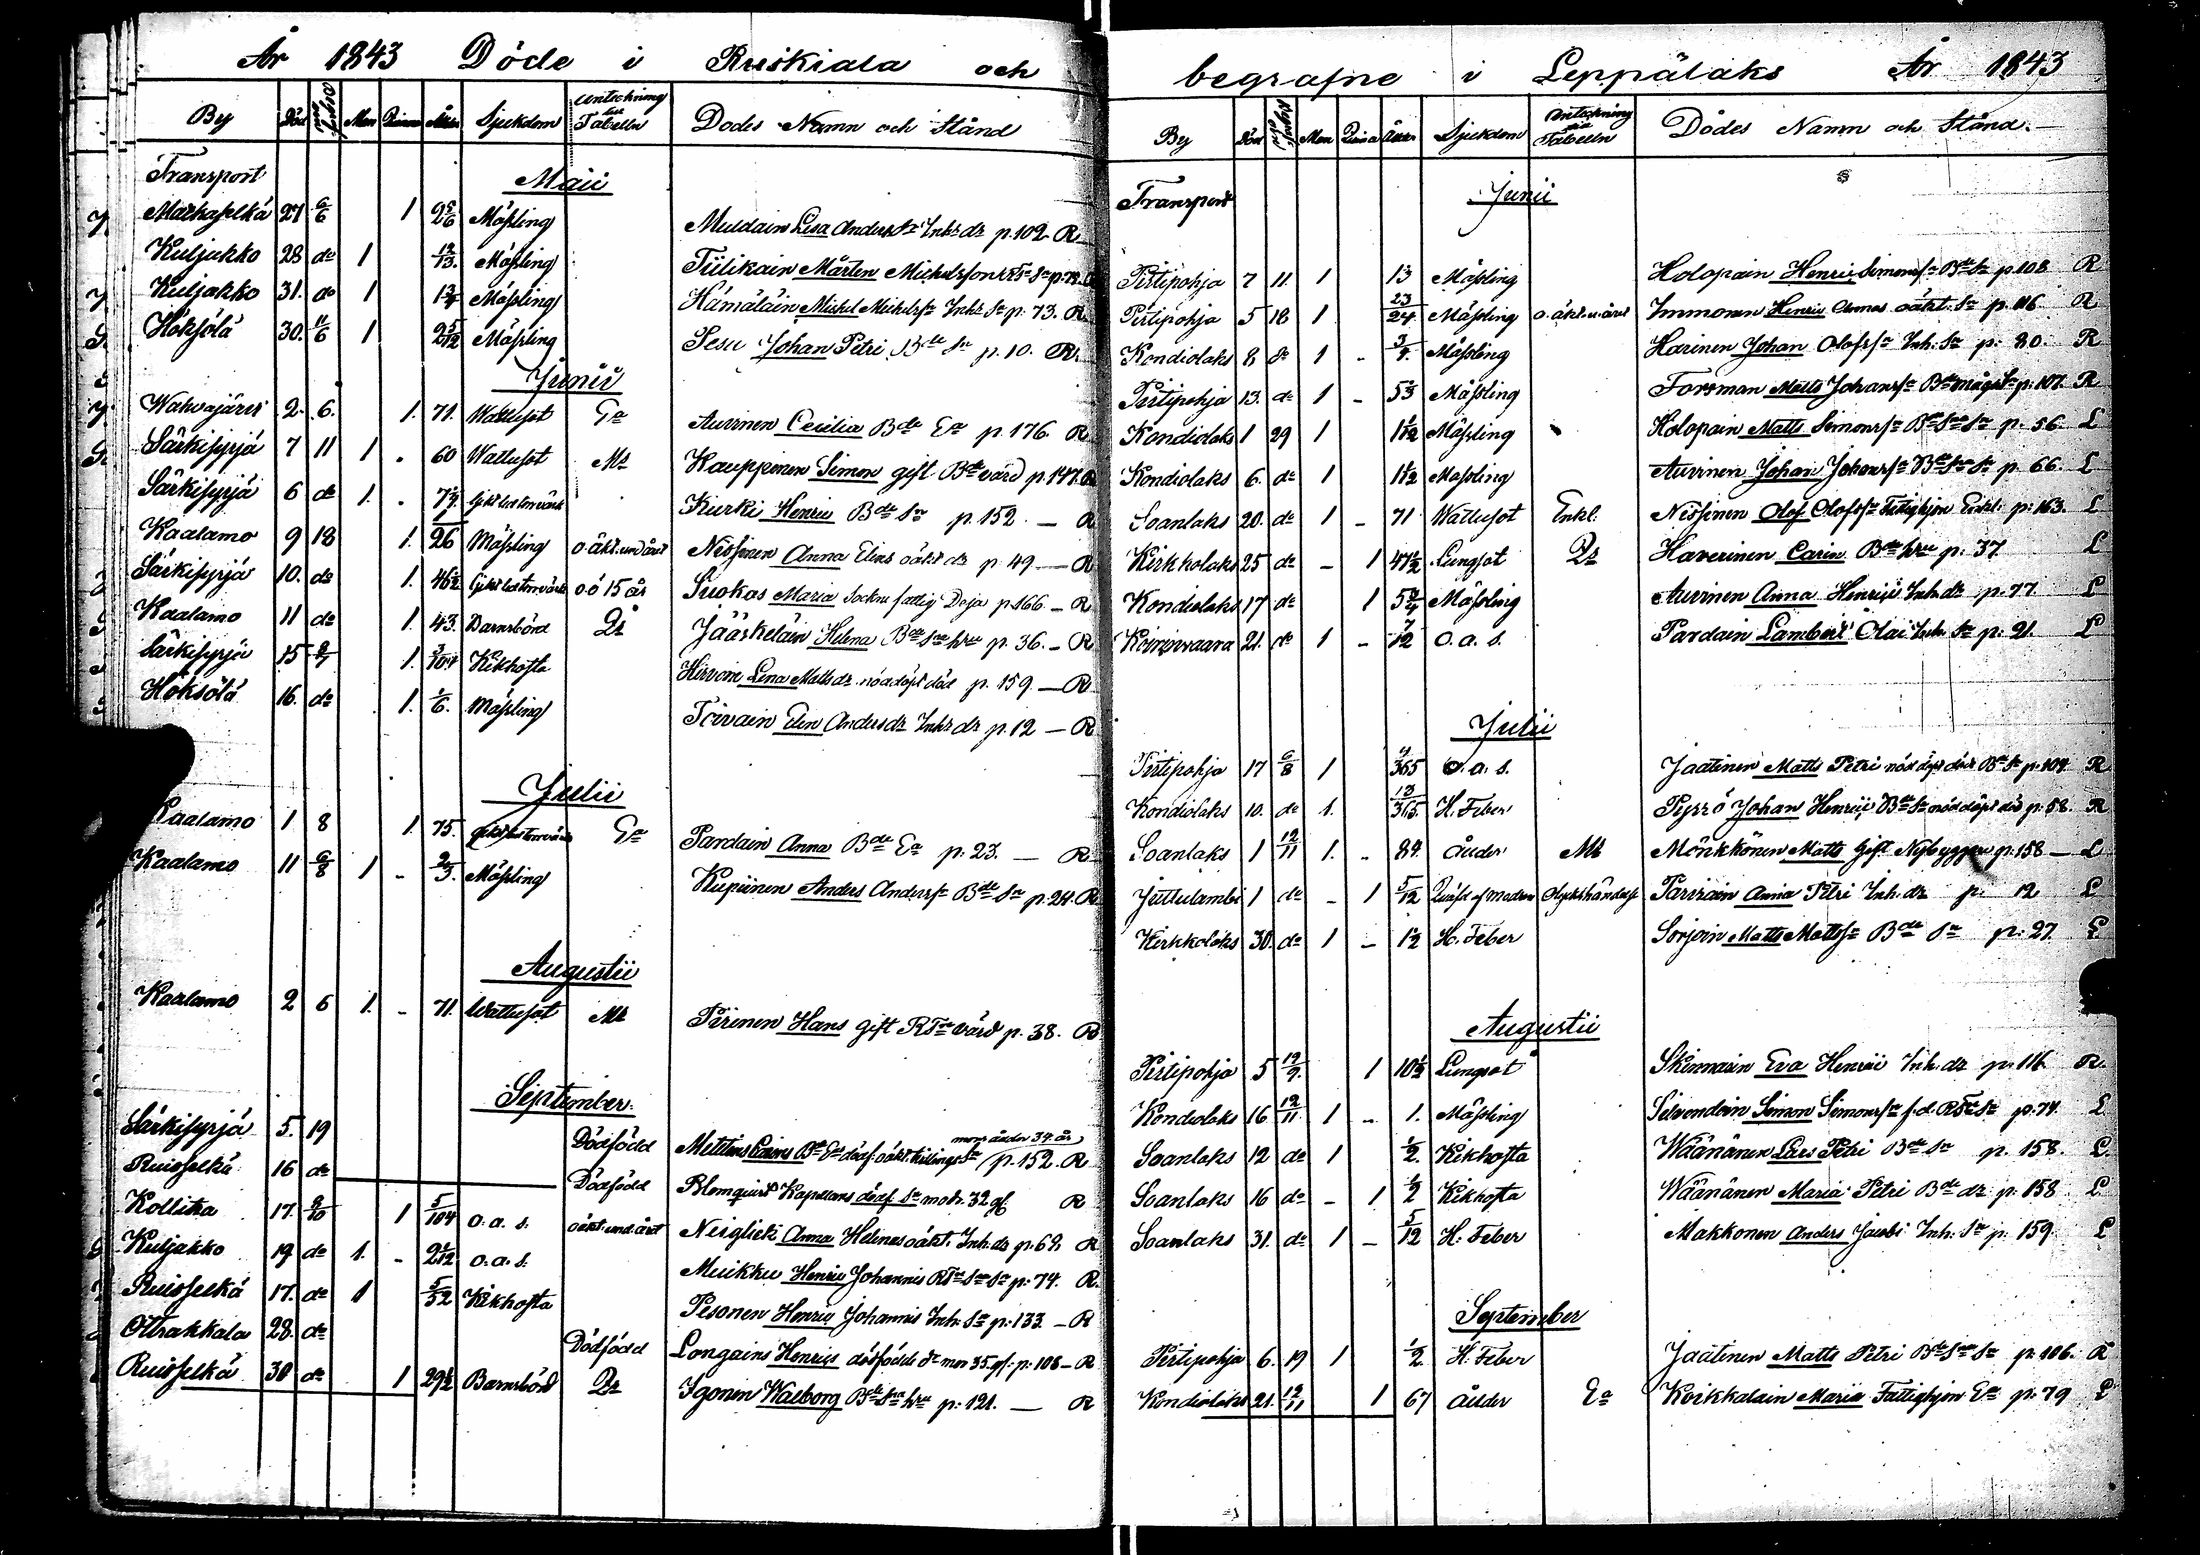 År 1843 Döde i Ruskiala och
By Död Men Ålder Sjukdom Antekning till Tabelln Dödes Namn och Stånd
Transport Maii
27 6/6 1 2 5/6 Mäßling Muldain Lisa Anders Inhr dr p. 102 R
Kuljakko 28 do 1 12/13 Mäßling Tiilikain Mårten Michelsson p. 79
Kuljakko 31. do 1 1 3/4 Mäßling Hämäläin Michel Michelss Inhr Sn p. 73. R
Höksölä 30. 11/6 1 2 5/12 Mäßling Sesu Johan Petri Bde Sn p. 10. R.
Junii
Wahvajärvi 2. 6. 1. 71. Wattusot Ea Auvinen Cecilia Bde Ea p. 176. R
Särkisyrjä 7 11 1 60 Wattusot Mr Kauppinen Simon gift Bde värd p. 147.
Särkisyrjä 6 do 1. Kurki Henric Bde Sn p. 152 — R
Kaalamo 9 18 1. 26 Mäßling o. äkt. und året Nissinen Anna Elins oäkt dr p. 49 — R
Särkisyrjä 10. do 1. 46 1/2 o. ö 15 år Suokas Maria Sockne fattig Deja p. 166. — R
Kaalamo 11 do 1. 43. Barnsbörd Qr Jääskeläin Helena Bde Sns hru p. 36. — R
Särkisyrjä 15 2/7 1. 3/104 Kikhosta Hirvoin Lena Matts dr. nöddöpt död p. 159. — R
Höksölä 16. do 1. 1/6. Mäßling Toivain Elen Anders dr Inhr dr p. 12 — R
Julii
Kaalamo 1 8 1. 75. Ea Pardain Anna Bde Ea p. 23. — R
Kaalamo 11 6/8 1 - 2/3. Mäßling Kupiinen Anders Anderss Bde Sn p. 24. R
Augustii
Kaalamo 2 6 1. - 71. Wattusot Mr Piirinen Hans gift RTe värd p. 38. R
September
Särkisyrjä 5. 19 Dödfödd mor ånder 34 år p. 152. R
Ruisselkä 16 do Dödfödd Blomquist Kapellans dödf. Sn modr. 32 gf R
Kollitka 17. 2/10 1 5/104 o. a. s. oäkt. und. året Neiglick Anna Helenas oäkt. Inh. dr p. 62. R
Kuljakko 19 do 1. - 2 1/12 o. a. s. Muikku Henric Johannis RTe Sns Sn p. 74. R.
Ruisselkä 17. do 1 5/52 Kikhosta Pesonen Henric Johannis Inh. Sn p. 133. — R
Otrakkala 28. do Dödfödd Longains Henrics dödfödde dr mor 35. gf. p. 108 — R
Ruisselkä 30 do 1 29 1/2 Barnsbörd Qr Igonin Walborg Bde Sns hru p. 121. — R
begrafne i Leppälaks År 1843
By Död Men Ålder Sjukdom Antekning till Tabelln Dödes Namn och Stånd.
Transport Junii
Pirtipohja 7 11. 1 13 Mäßling Holopain Henric Simonss Bde Sn p. 108 R
Pirtipohja 5 18 1 23/24 Mäßling o. äkt. u. året Immonen Henric Annas oäkt. Sn p. 116 R
Kondiolaks 8 do 1 - 3/4. Mäßling Harinen Johan Olofss Inh. Sn p. 80. R
Pirtipohja 13. do 1 - Mäßling Forsman Matts Johanss Bde mågs Sn p. 107. R
Kondiolaks 1 29 1 1 1/12 Mäßling Holopain Matts Simonss Bde Sns Sn p. 56. L
Kondiolaks 6. do 1 1 1/12 Mäßling Auvinen Johan Johanss Bde Sns Sn p. 66. L
Soanlaks 20. do 1 - 71 Wattusot Enkl: Nissinen Olof Olofss Fattighjon Enkl: p. 163. L
Kirkkolaks 25 do - 1 47 1/2 Lungsot Qr Haverinen Carin Bde hru p. 37. L
Kondiolaks 17 do 1 5 3/4 Mäßling Auvinen Anna Henrici Inh. dr p. 77. L
Koirinvaara 21. do 1 - 7/12 o. a. s. Pardain Lambert Olai Inh. Sn p. 21. L
Julii
Pirtipohja 17 6/8 1 9/365 o. a. s. Jaatinen Matts Petri nöd döpt död Bde Sn p. 104. R
Kondiolaks 10. do 1. 13/365. H. Feber Pyrrö Johan Henrici Bde Sn nöddöpt död p. 58. R
Soanlaks 1 12/11 1. - 84. Ålder Mr Mönkkönen Matts Gift Nybyggare p. 158 — L
Juttulambi 1 do - 1 5/12 Qväfd af modren Olyckshändelse Parviain Anna Petri Inh. dr p. 12 L
Kirkkolaks 30. do 1 - 1 1/2 H. Feber Sorjoin Matts Mattss Bde Sn p. 27. L
Augustii
Pirtipohja 5 12/9. 1 10 1/2 Lungsot Skinnain Eva Henrici Inh. dr p. 116 R.
Kondiolaks 16 12/11 1 - 1. Mäßling Silvendoin Simon Simonss f. d. RTe Sn p. 74. L
Soanlaks 12 do 1 1/2. Kikhosta Wäänänen Lars Petri Bde Sn p. 158. L
Soanlaks 16 do - 1 1/2 Kikhosta Wäänänen Maria Petri Bde dr p. 158 L
Soanlaks 31. do 1 - 5/12 H. Feber Makkonen Anders Jacobi Inh. Sn p. 159. L
September
Pirtipohja 6. 19 1 1/2. H. Feber Jaatinen Matts Petri Bde Sns Sn p. 106. R
Kondiolaks 21. 12/11 1 67 Ålder Ea Koikkalain Maria Fattighjon Ea p. 79 L